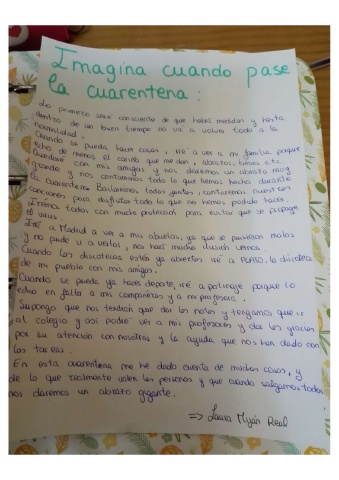 Imagina cuando pase
la cuarentena:
Lo primero seré consciente de que habrá medidas y hasta
dentro de un buen tiempo no va a volver todo a la
normalidad.
Cuando se pueda hacer cosas, iré a ver a mi familia porque
echo de menos el cariño que me dan, abrazos, besos etc.
Quedaré con mis amigos y nos daremos un abrazo muy
grande y nos contaremos todo lo que hemos hecho durante
la cuarentena. Bailaremos todos juntos, cantaremos nuestras
canciones para disfrutar todo lo que no hemos podido hacer.
Iremos todos con mucha protección para evitar que se propague
el virus.
Iré a Madrid a ver a mis abuelos, ya que se pusieron malos
y no pude ir a verlos, nos hará mucha ilusión vernos.
Cuando las discotecas estén ya abiertas iré a, la discoteca
de mi pueblo con mis amigos.
Cuando se pueda ya hacer deporte, iré a patinaje porque lo
echo en falta a mis compañeras y a mi profesora.
Supongo que nos tendrán que dar las notas y tengamos que ir
al colegio y así podré ver a mis profesores y dar las gracias
por su atención con nosotros y la ayuda que nos han dado con
las tareas.
En esta cuarentena me he dado cuenta de muchas cosas, y
de lo que realmente valen las personas y que cuando salgamos todos
nos daremos un abrazo gigante.
=> Laura Miján Real